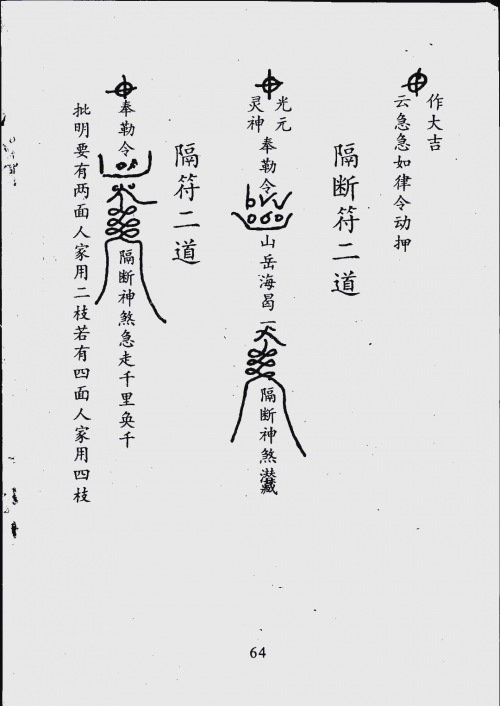 作大吉
云急急如律令动押
隔断符二道
光元
灵神
奉勒令
山岳海曷一
隔断神煞潜藏
隔符二道
奉勒令
隔断神煞急走千里奂千
批明要有两面人家用二枝若有四面人家用四枝
64